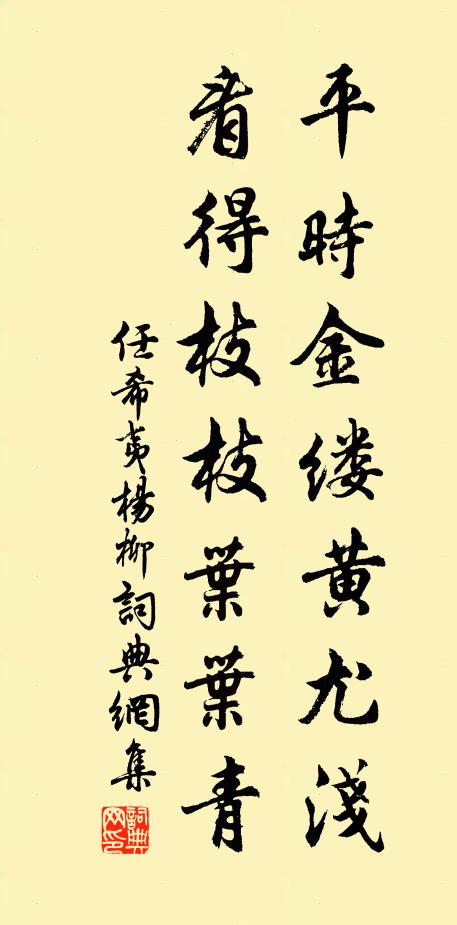 平時金缕黄尤淺
看得枝枝葉葉青
任希夷楊柳詞典網集
詞典
网印